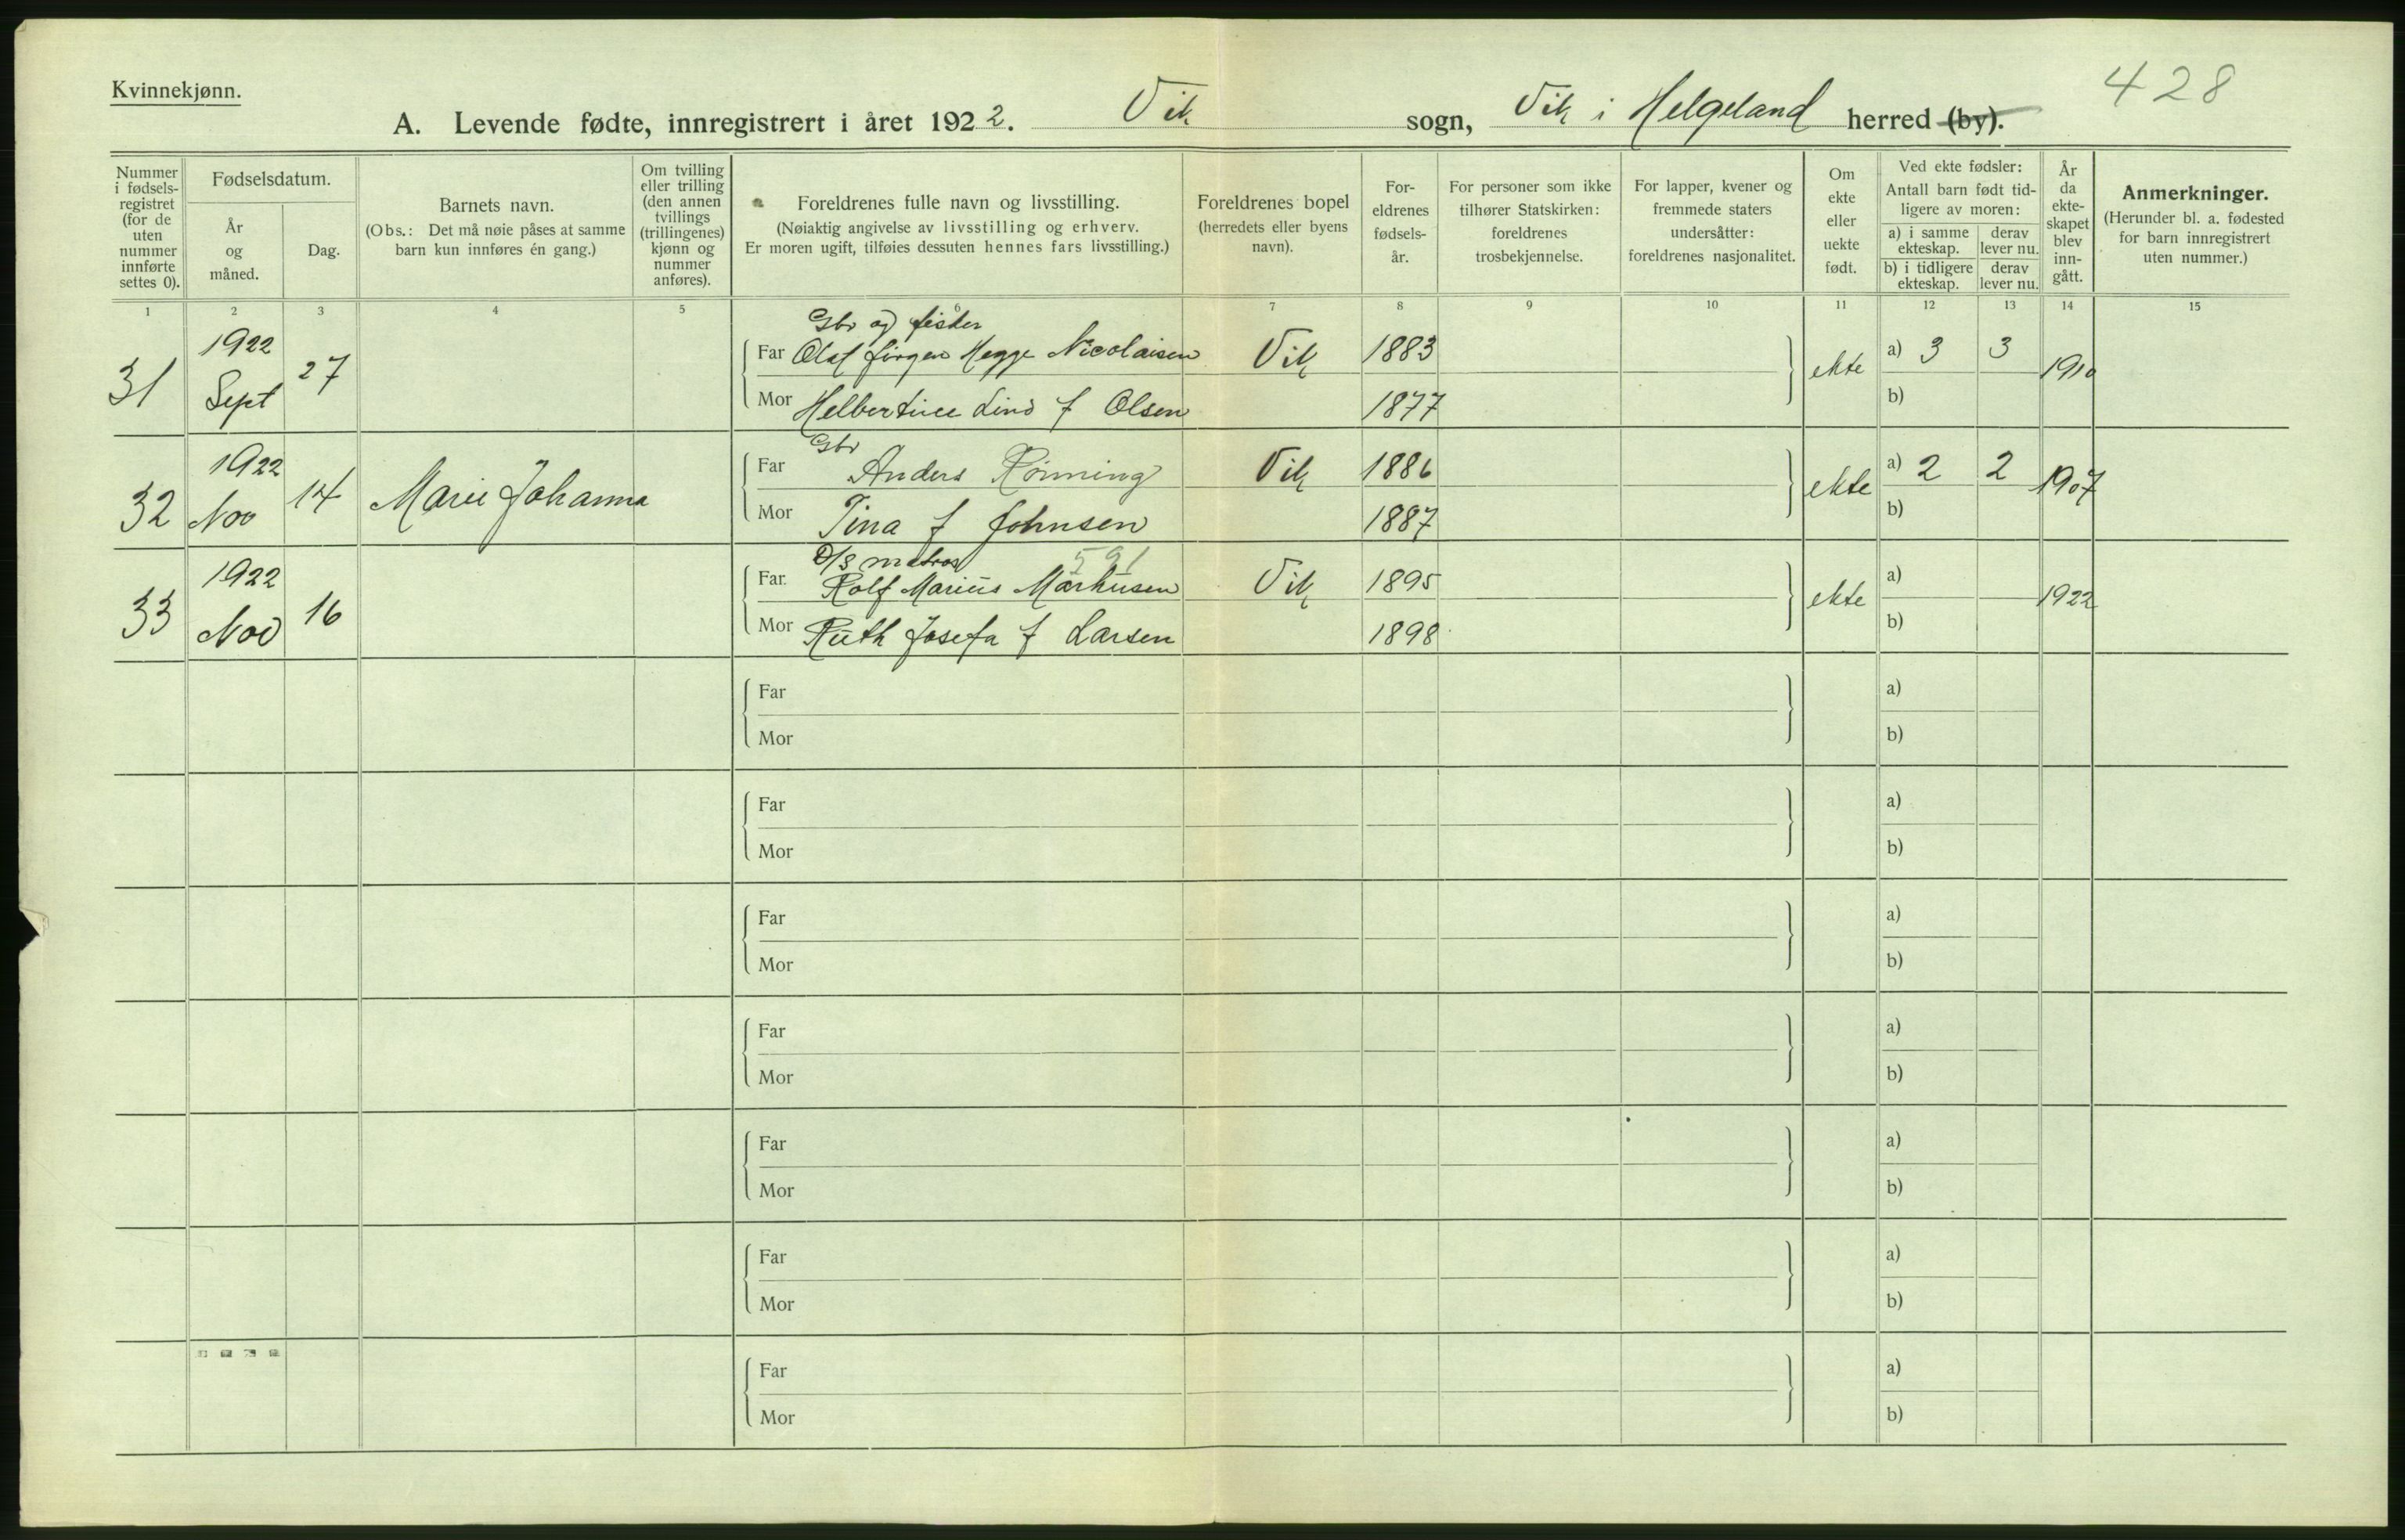 Kvinnekjønn.
428
A. Levende fødte, innregistrert i året 1922. Vik sogn, Vik i Helgeland herred (by).
Nummer i fødsels-registret (for de uten nummer innførte settes 0).
Fødselsdatum.
År og måned.
Dag.
Barnets navn.
(Obs.: Det må nøie påses at samme barn kun innføres én gang.)
Om tvilling eller trilling (den annen tvillings (trillingenes) kjønn og nummer anføres).
Foreldrenes fulle navn og livsstilling.
(Nøiaktig angivelse av livsstilling og erhverv.
Er moren ugift, tilføies dessuten hennes fars livsstilling.)
Foreldrenes bopel
(herredets eller byens navn).
For-eldrenes fødsels-år.
For personer som ikke tilhører Statskirken: foreldrenes trosbekjennelse.
For lapper, kvener og fremmede staters undersåtter: foreldrenes nasjonalitet.
Om ekte eller uekte født.
Ved ekte fødsler:
Antall barn født tid-ligere av moren:
a) i samme ekteskap.
derav lever nu.
b) i tidligere ekteskap.
derav lever nu.
År da ekte-skapet blev inn-gått.
Anmerkninger.
(Herunder bl. a. fødested for barn innregistrert uten nummer.)
1 2 3 4 5 6 7 8 9 10 11 12 13 14 15
Gbr og fisker
31 1922 Sept 27 Far Olaf Jørgen Hegge Nicolaisen Vik 1883 ekte a) 3 3 1910
Mor Helbertine Lind f Olsen 1877 b)
Gbr
32 1922 Nov 14 Marie Johanna Far Anders Rønning Vik 1886 ekte a) 2 2 1907
Mor Tina f Johnsen 1887 b)
D/S matros 591
33 1922 Nov 16 Far. Rolf Marius Markusen Vik 1895 ekte a) 1922
Mor Ruth Josefa f Larsen 1898 b)
Far a)
Mor b)
Far a)
Mor b)
Far a)
Mor b)
Far a)
Mor b)
Far a)
Mor b)
Far a)
Mor b)
Far a)
Mor b)